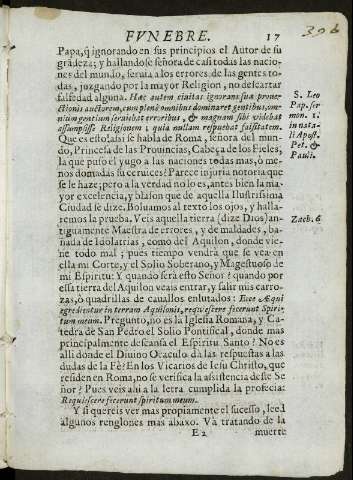 FVNEBRE. 17
306
Papa, q̃ ignorando en sus principios el Autor de su
grãdeza; y hallandose señora de casi todas las nacio-
nes del mundo, seruia a los errores de las gentes to-
das, juzgando por la mayor Religion, no descartar
falsedad alguna. Hæc autem ciuitas ignorans suæ proue-
ctionis auctorem, cum plenè omnibus dominaret gentibus, om-
nium gentium seruiebat erroribus, & magnam sibi videbat
assumpsisse Religionem; quia nullam respuebat falsitatem.
Que es esto, assi se habla de Roma, señora del mun-
do, Princesa de las Prouincias, Cabeça de los Fieles,
la que puso el yugo a las naciones todas mas, ò me-
nos domadas su ceruices? Parece injuria notoria que
se le haze; pero a la verdad no lo es, antes bien la ma-
yor excelencia, y blason que de aquella Ilustrissima
Ciudad se dize. Boluamos al texto los ojos, y halla-
remos la prueba. Veis aquella tierra (dize Dios) an-
tiguamente Maestra de errores, y de maldades, ba-
ñada de Idolatrias, como del Aquilon, donde vie-
ne todo mal; pues tiempo vendrá que se vea en
ella mi Corte, y el Solio Soberano, y Magestuoso de
mi Espiritu: Y quando será esto Señor? quando por
essa tierra del Aquilon veais entrar, y salir mis carro-
zas, ò quadrillas de cauallos enlutados: Ecce Æqui
egrediuntur in terram Aquilonis, requiescere fecerunt Spiri-
tum meum. Pregunto, no es la Iglesia Romana, y Ca-
tedra de San Pedro el Solio Pontifical, donde mas
principalmente descansa el Espiritu Santo? No es
alli donde el Diuino Oraculo dà las respuestas a las
dudas de la Fè? En los Vicarios de Iesu Christo, que
residen en Roma, no se verifica la assistencia deste Se-
ñor? Pues veis ahi a la letra cumplida la profecia:
Requiescere fecerunt spiritum meum.
Y si quereis ver mas propiamente el sucesso, leed
algunos renglones mas abaxo. Và tratando de la
E 2 muerte
S. Leo
Pap. ser
mon. 1.
in nata-
li Apost.
Pet. &
Pauli.
Zach. 6